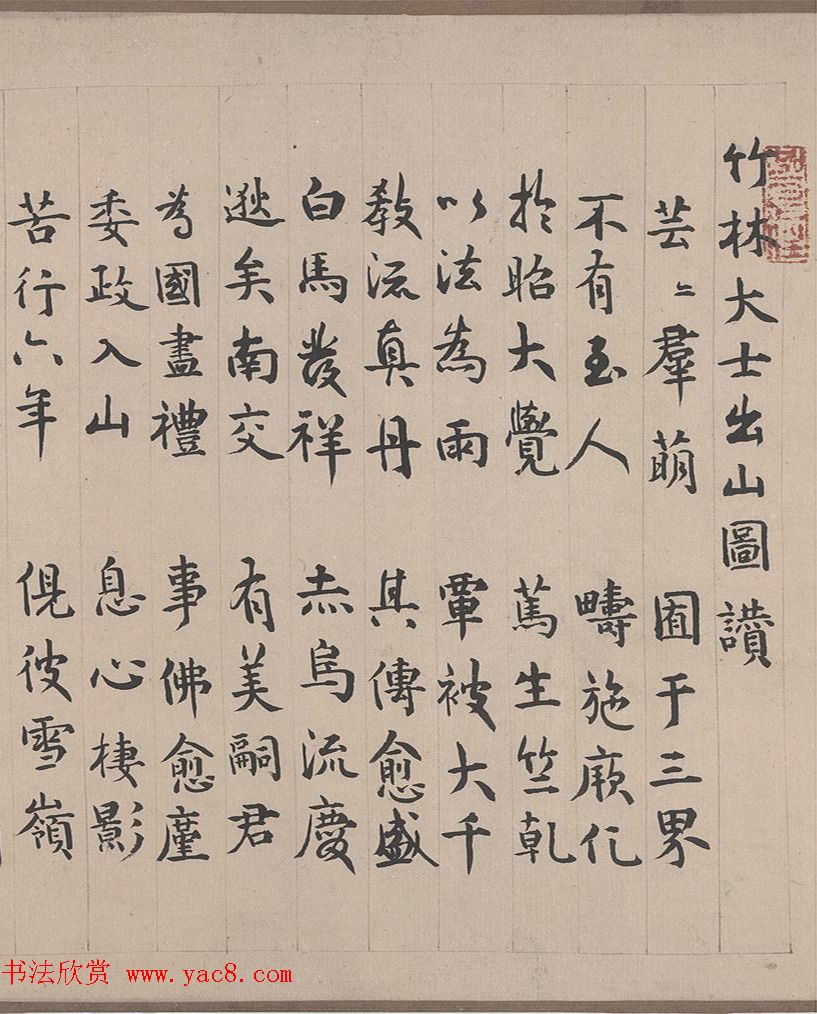 竹林大士出山圖讚
芸〻羣萌 囿于三界
不有至人 疇施厥化
於昭大覺 篤生竺乾
以法為雨 覃被大千
教流真丹 其傳愈盛
白馬發祥 赤烏流慶
逖矣南交 有美嗣君
為國盡禮 事佛愈廑
委政入山 息心棲影
苦行六年 俔彼雪嶺
书法欣赏 www.yac8.com